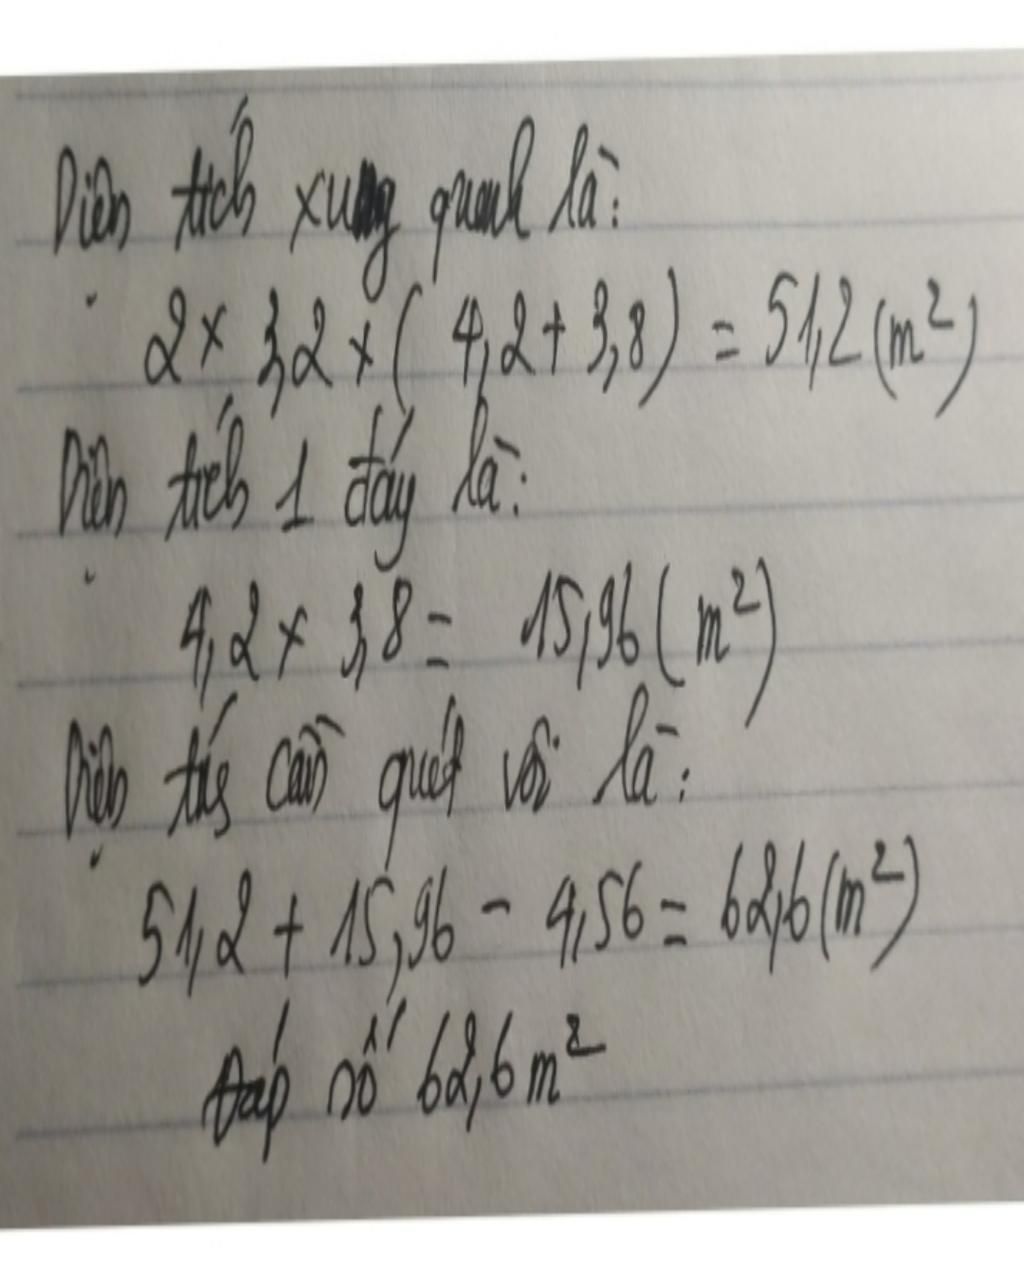 Diện tích xung quanh là:
2 × 3,2 × ( 4,2 + 3,8 ) = 51,2 (m²)
Diện tích 1 đáy là:
4,2 × 3,8 = 15,96 ( m²)
Diện tích cần quét vôi là:
51,2 + 15,96 - 4,56 = 62,6 (m²)
Đáp số 62,6 m²